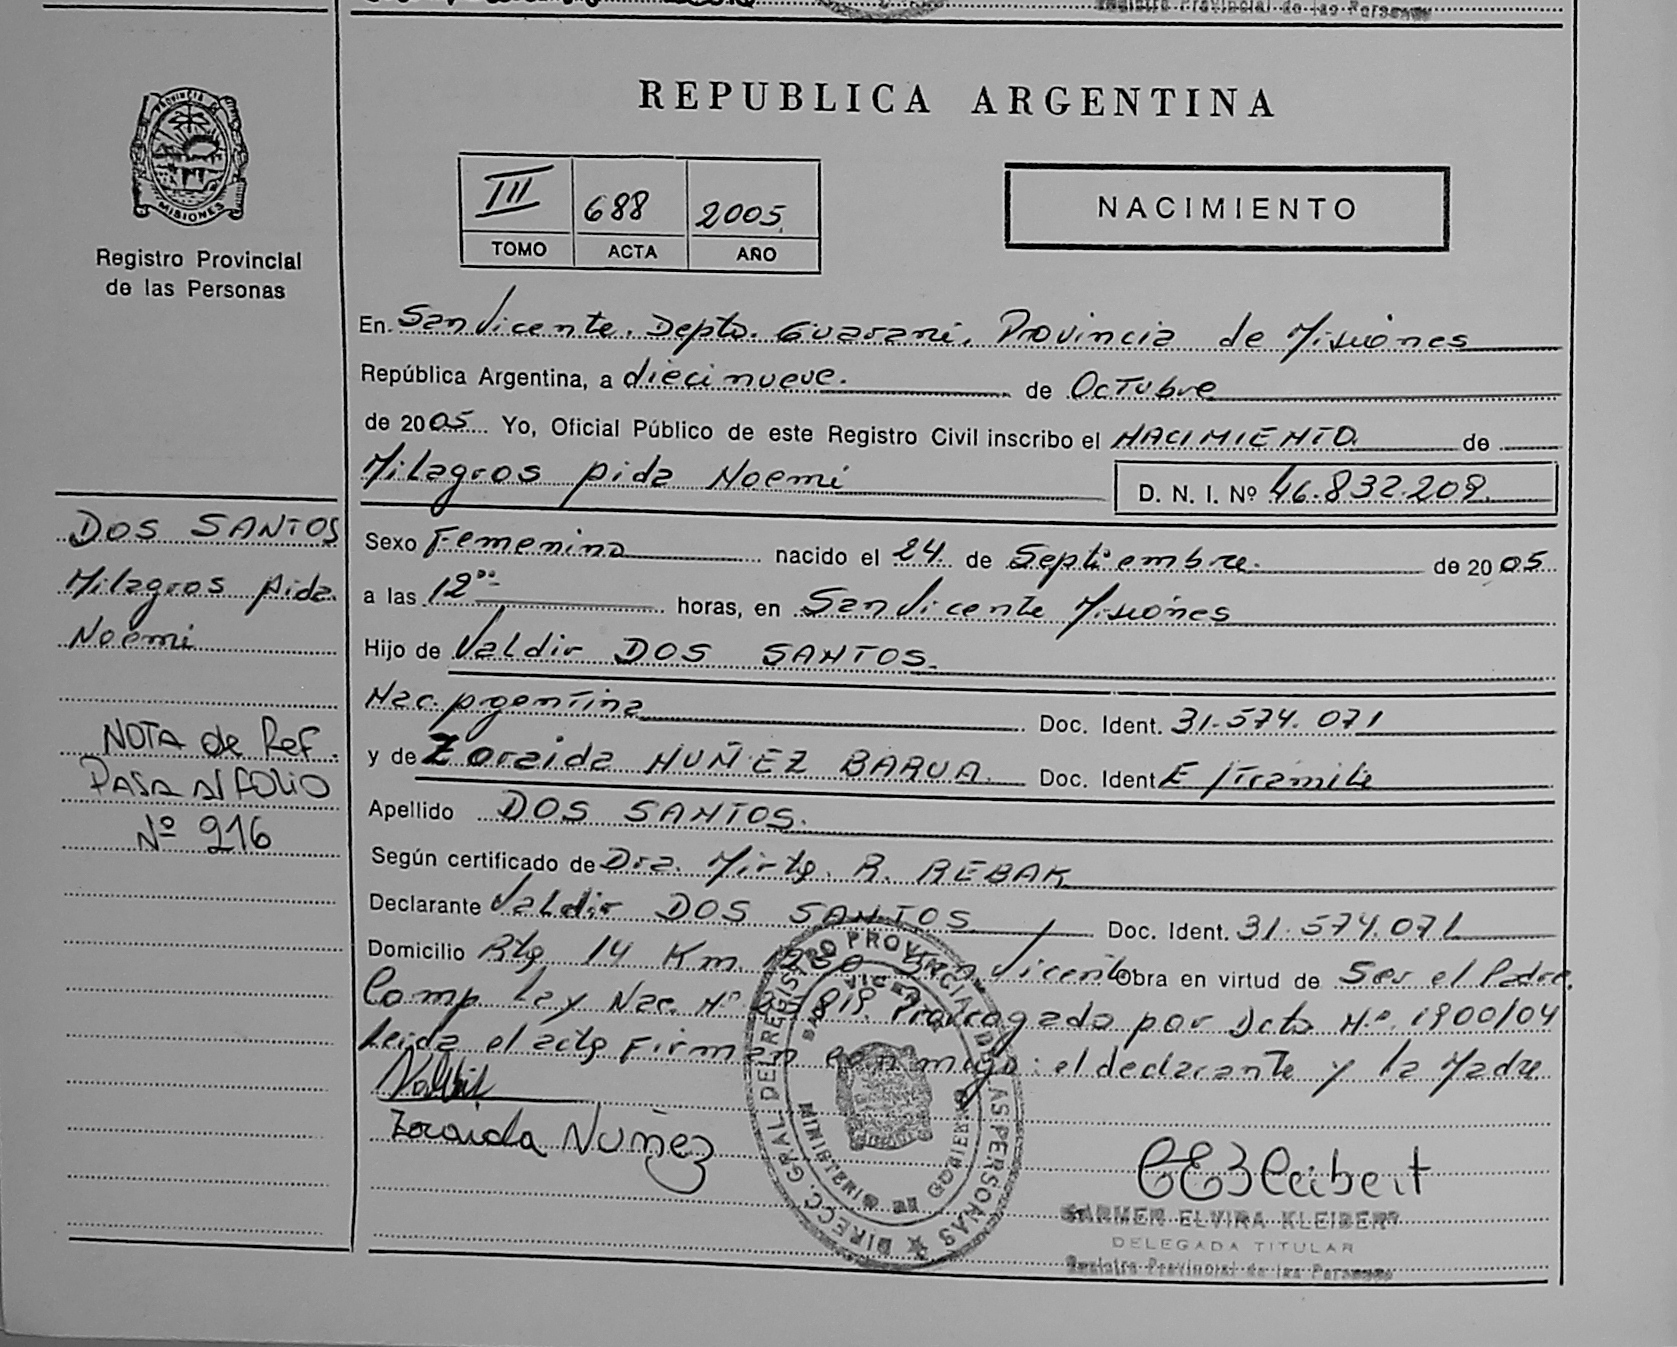 Registro Provincial de las Personas
PROVINCIA DE
MISIONES
Registro Provincial
de las Personas
REPUBLICA ARGENTINA
III 688 2005.
TOMO ACTA AÑO
NACIMIENTO
En San Vicente. Depto. Guarani. Provincia de Misiones
República Argentina, a diecinueve. de Octubre
de 2005 Yo, Oficial Público de este Registro Civil inscribo el NACIMIENTO de
Milagros Aida Noemi D. N. I. Nº 46.832.209.
Sexo Femenino nacido el 24 de Septiembre. de 2005
a las 12⁰⁰ horas, en San Vicente Misiones
Hijo de Valdir DOS SANTOS.
Nac. Argentina Doc. Ident. 31.574.071
y de Zoraida NUÑEZ BARUA. Doc. Ident E/tramite
Apellido DOS SANTOS.
Según certificado de Dra. Mirta. R. REBAK
Declarante Valdir DOS SANTOS Doc. Ident. 31.574.071
Domicilio Rta 14 Km 1230 San Vicente Obra en virtud de Ser el Padre.
Comp Ley Nac. Nº 25819. Prorrogado por Dcto Nº. 1900/04
Leida el acta Firman conmigo: el declarante y la Madre
Zoraida Nuñez
CARMEN ELVIRA KLEIBERT
DELEGADA TITULAR
Registro Provincial de las Personas
DIRECC. GRAL. DEL REGISTRO PROVINCIAL DE LAS PERSONAS
MINISTERIO DE GOBIERNO
DOS SANTOS
Milagros Aida
Noemi
NOTA de Ref.
PASA Al FOLIO
Nº 216